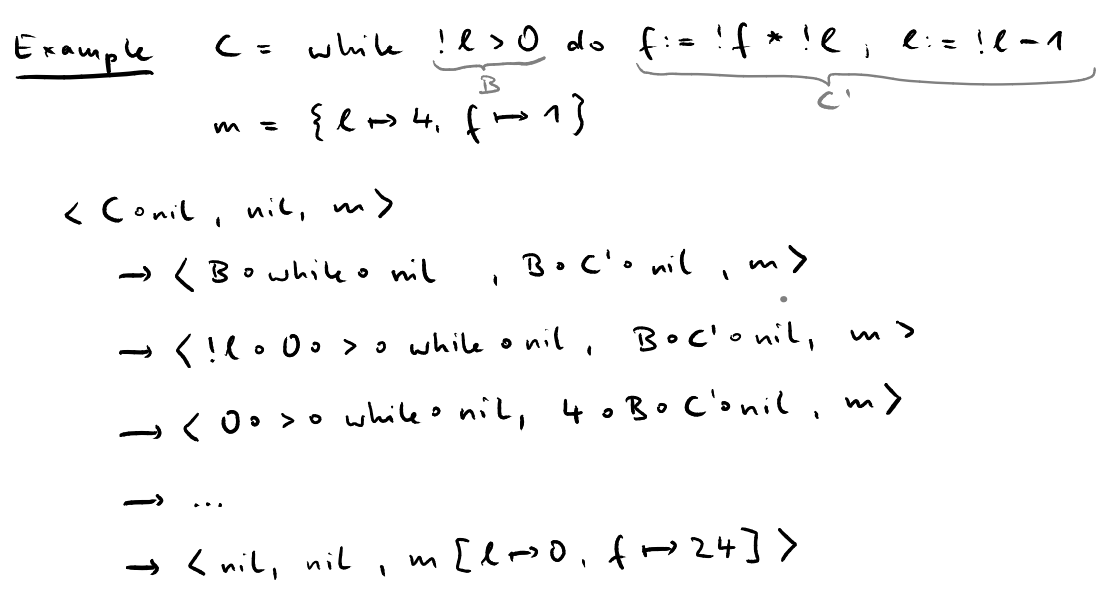 Example C = while !l > 0 do f := !f * !l , l := !l - 1
B C'
m = { l ↦ 4, f ↦ 1 }
< C ∘ nil , nil, m >
→ < B ∘ while ∘ nil , B ∘ C' ∘ nil , m >
→ < !l ∘ 0 ∘ > ∘ while ∘ nil , B ∘ C' ∘ nil, m >
→ < 0 ∘ > ∘ while ∘ nil, 4 ∘ B ∘ C' ∘ nil , m >
→ ...
→ < nil, nil , m [ l ↦ 0, f ↦ 24 ] >